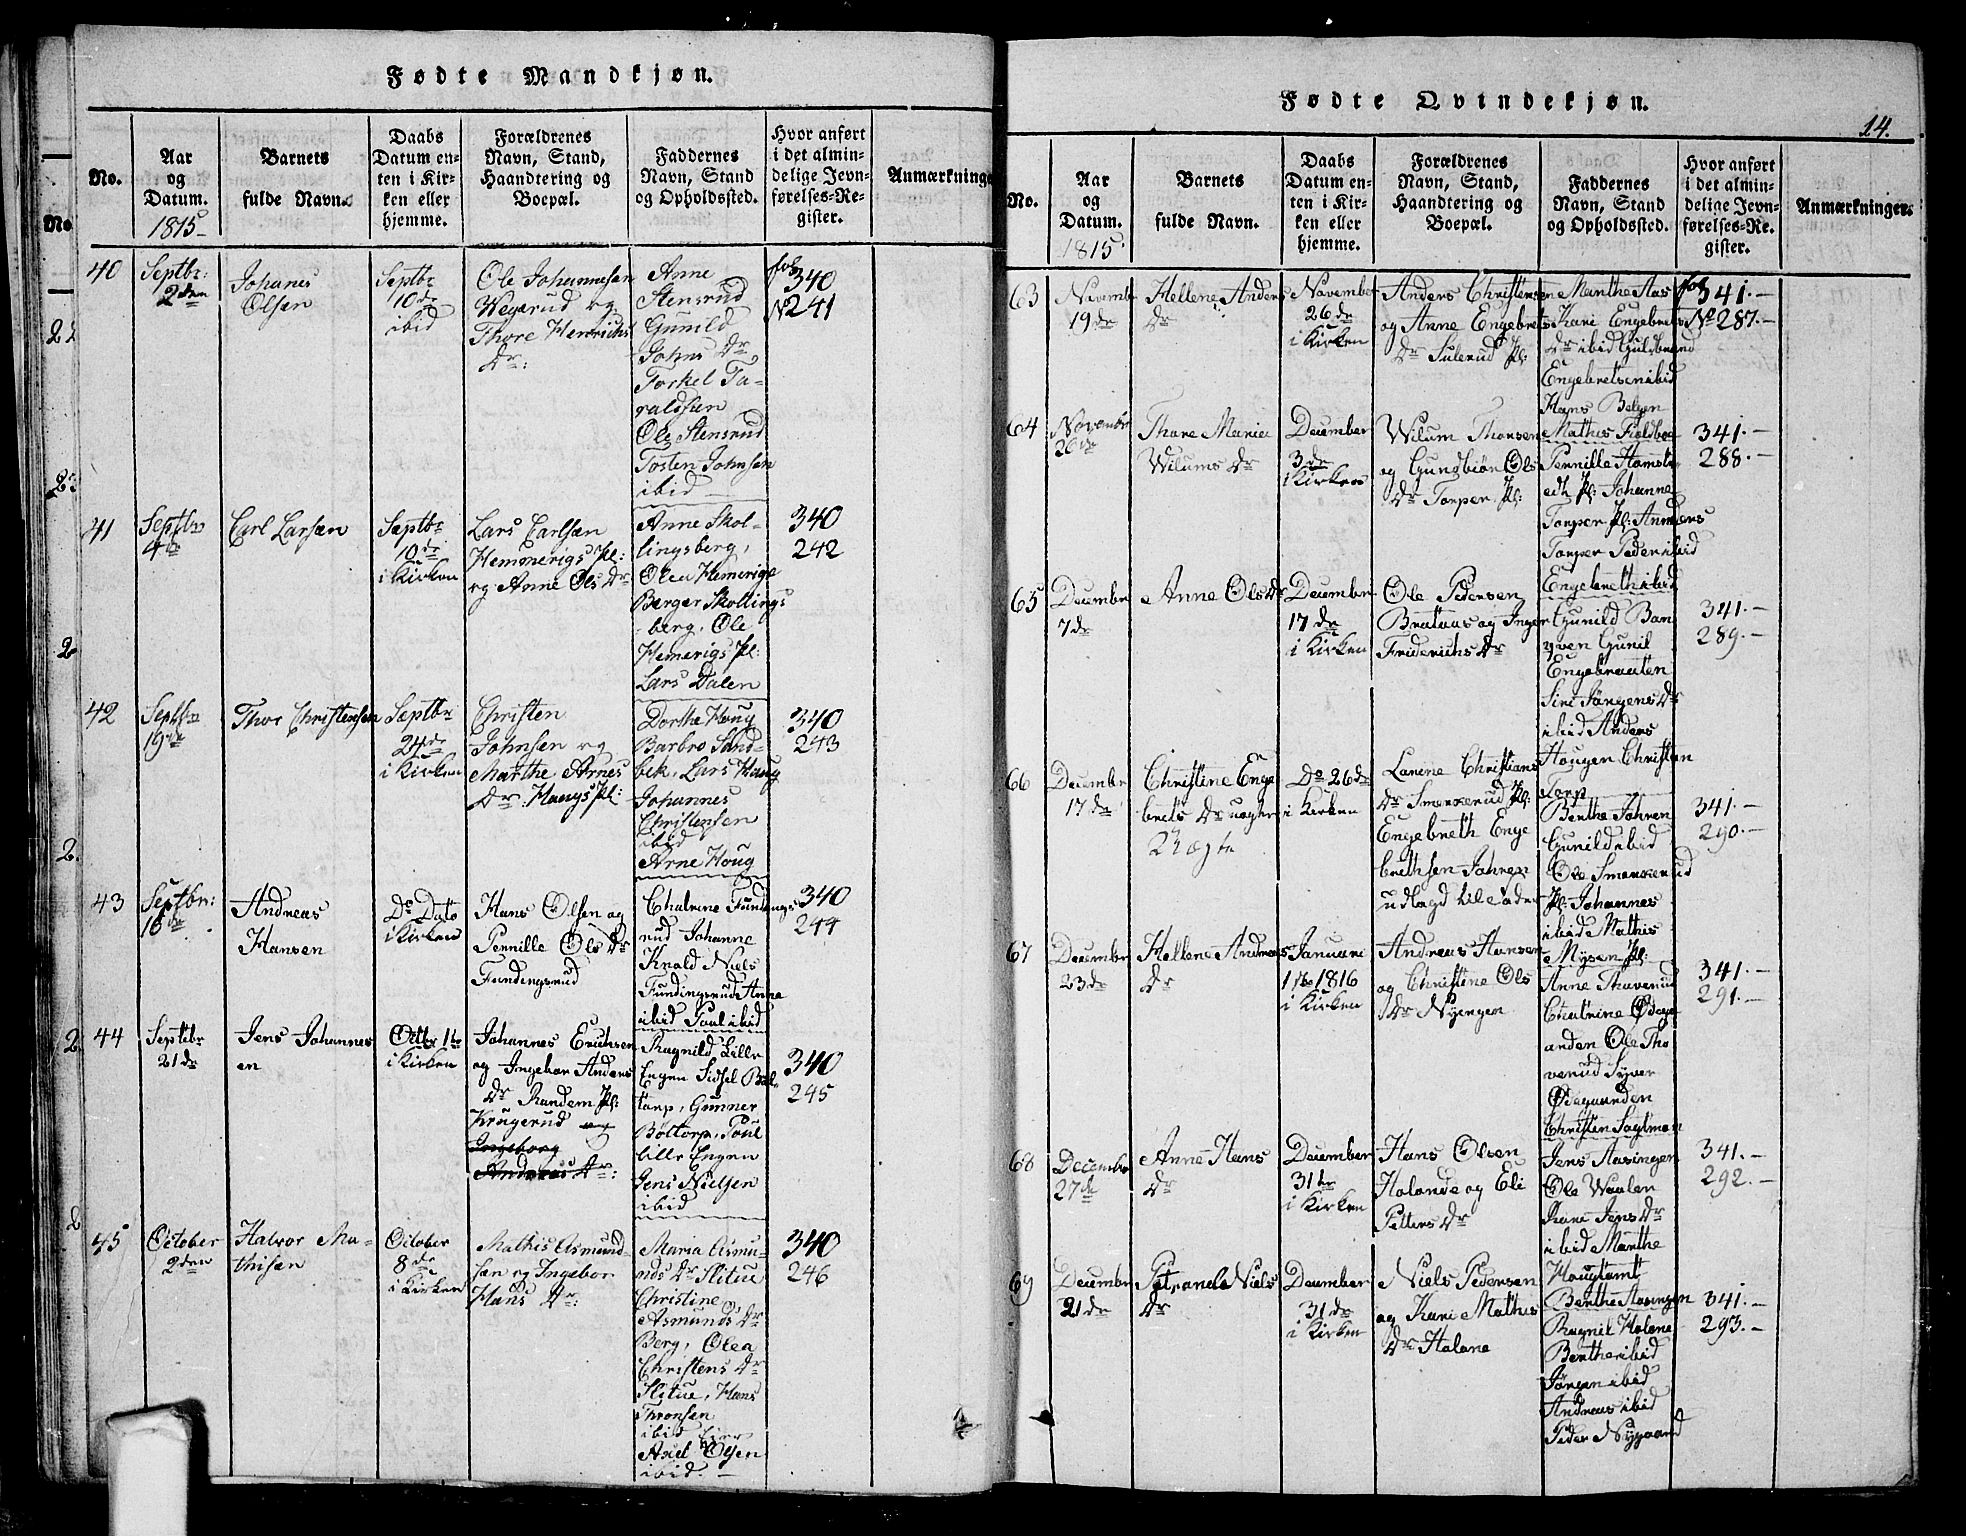 Fødte Mandkjøn.
No.
Aar
og
Datum.
1815
Barnets
fulde Navn.
Daabs
Datum en-
ten i Kir-
ken eller
hjemme.
Forældrenes
Navn, Stand,
Haandtering og
Boepæl.
Faddernes
Navn, Stand
og Opholdssted.
Hvor anført
i det almin-
delige Jevn-
førelses-Re-
gister.
Anmærkninge
40
Septbr:
2den
Johanes
Olsen
Septbr
10de
ibid
Ole Johannesen
Wegerud og
Thore Henrichs
Dr:
Anne
Stensrud
Gunild
Johns Dr
Torkel Ta-
raldsen
Ole Stensrud
Tosten Johnsen
ibid
fol
340
N 241
41
Septbr
4de
Carl Larsen
Septbr
10de
i Kirken
Lars Carlsen
Hemmerigs Pl:
og Anne Ols Dr
Anne Skol-
lingsberg,
Olea Hemerigs
Berger Skollings
berg, Ole
Hemerigs Pl:
Lars Dalen
340
242
42
Septbr
19de
Thor Christensen
Septbr
24de
i Kirken
Christen
Johnsen og
Marthe Arnes
Dr: Haugs Pl:
Dorthe Houg
Barbro Sand-
bek, Lars Haug
Johannes
Christensen
ibid
Arne Houg
340
243
43
Septbr:
16de
Andreas
Hansen
Do Dato
i Kirken
Hans Olsen og
Pernille Ols Dr
Fundingsrud
Chatrine Fundings
rud Johanne
Knold Niels
Fundingsrud Anne
ibid Poul ibid
340
244
44
Septbr
21de
Jens Johannes
en
Octbr 1te
i Kirken
Johannes Erichsen
og Ingebor Anders
Dr Randem Pl:
Krugerud og
Ingeborg
Anderes Dr:
Ragnild Lille
Engen Sidsel Böl
torp, Gunner
Böltorp, Poul
lille Engen
Jens Nielsen
ibid
340
245
45
October
2den
Halvor Ma-
thisen
October
8de
i Kirken
Mathis Asmund-
sen og Ingebor
Hans Dr:
Maria Asmu-
nds Dr Slitue
Christine
Asmunds Dr
Berg, Olea
Christens Dr
Slitue, Hans
Thronsen
ibid Eier
Axel Olsen
ibid.
340
246
Fødte Qvindekjøn.
14.
No.
Aar
og
Datum.
1815
Barnets
fulde Navn.
Daabs
Datum en-
ten i Kir-
ken eller
hjemme.
Forældrenes
Navn, Stand,
Haandtering og
Boepæl.
Faddernes
Navn, Stand
og Opholdssted.
Hvor anført
i det almin-
delige Jevn-
førelses-Re-
gister.
Anmærkninger.
63
Novembr
19de
Hellene Anders
Dr
November
26de
i Kirken
Anders Christensen
og Anne Engebrets
Dr Sulerud Pl:
Marthe Aas
Kari Engebrets
Dr ibid Guldbrand
Engebretsen ibid
Hans Belgen
fol
341.
No 287.
64
Novembr
26de
Thore Maria
Wilums Dr
December
3de
i Kirken
Wilum Thorsen
og Gundbiör Ols
Dr Torper Pl:
Mathis Fieldboe
Pernille Homst
edt Pl: Johanne
Torper Pl: Anders
Torper Peder ibid
Engebreth ibid
341.
288.
65
Decembr
7de
Anne Ols Dr
December
17de
i Kirken
Ole Pedersen
Brataas og Inger
Friderichs Dr
Gunild Ban
gven Gunil
Engebraaten
Siri Jörgens Dr
ibid Anders
Hougen Christen
Torp
341.
289.
66
Decembr
17de
Christine Enge
brets Dr uægte
2 Uægte
Do 26de
i Kirken
Larine Christians
Dr Smerkerud Pl:
Engebreth Enge
brethsen Jahren
udlagd til Fader
Berthe Jahren
Gunild ibid
Ole Smerkerud
Pl: Johannes
ibid Mathis
Mysen Pl:
341.
290.
67
Decembr
23de
Hellene Andreas
Dr
Januari
1te 1816
i Kirken
Andreas Hansen
og Christine Ols
Dr Nyengen
Anne Thaverud
Chatrine Ödega
anden Ole Tho
verud Syver
Ödegaarden
Christen Sagtman
341.
291.
68
Decembr
27de
Anne Hans
Dr
December
31te
i Kirken
Hans Olsen
Holande og Eli
Petters Dr
Jens Aasingen
Ole Waalen
Kari Jens Dr
ibid Marthe
Hougtomt
341.
292.
69
Decembr
21de
Petronele Niels
Dr
December
31de
i Kirken
Niels Pedersen
og Kari Mathis
Dr Holene
Berthe Aasingen
Ragnil Holene
Berthe ibid
Jörgen ibid
Andreas ibid
Peder Nygaard
341.
293.